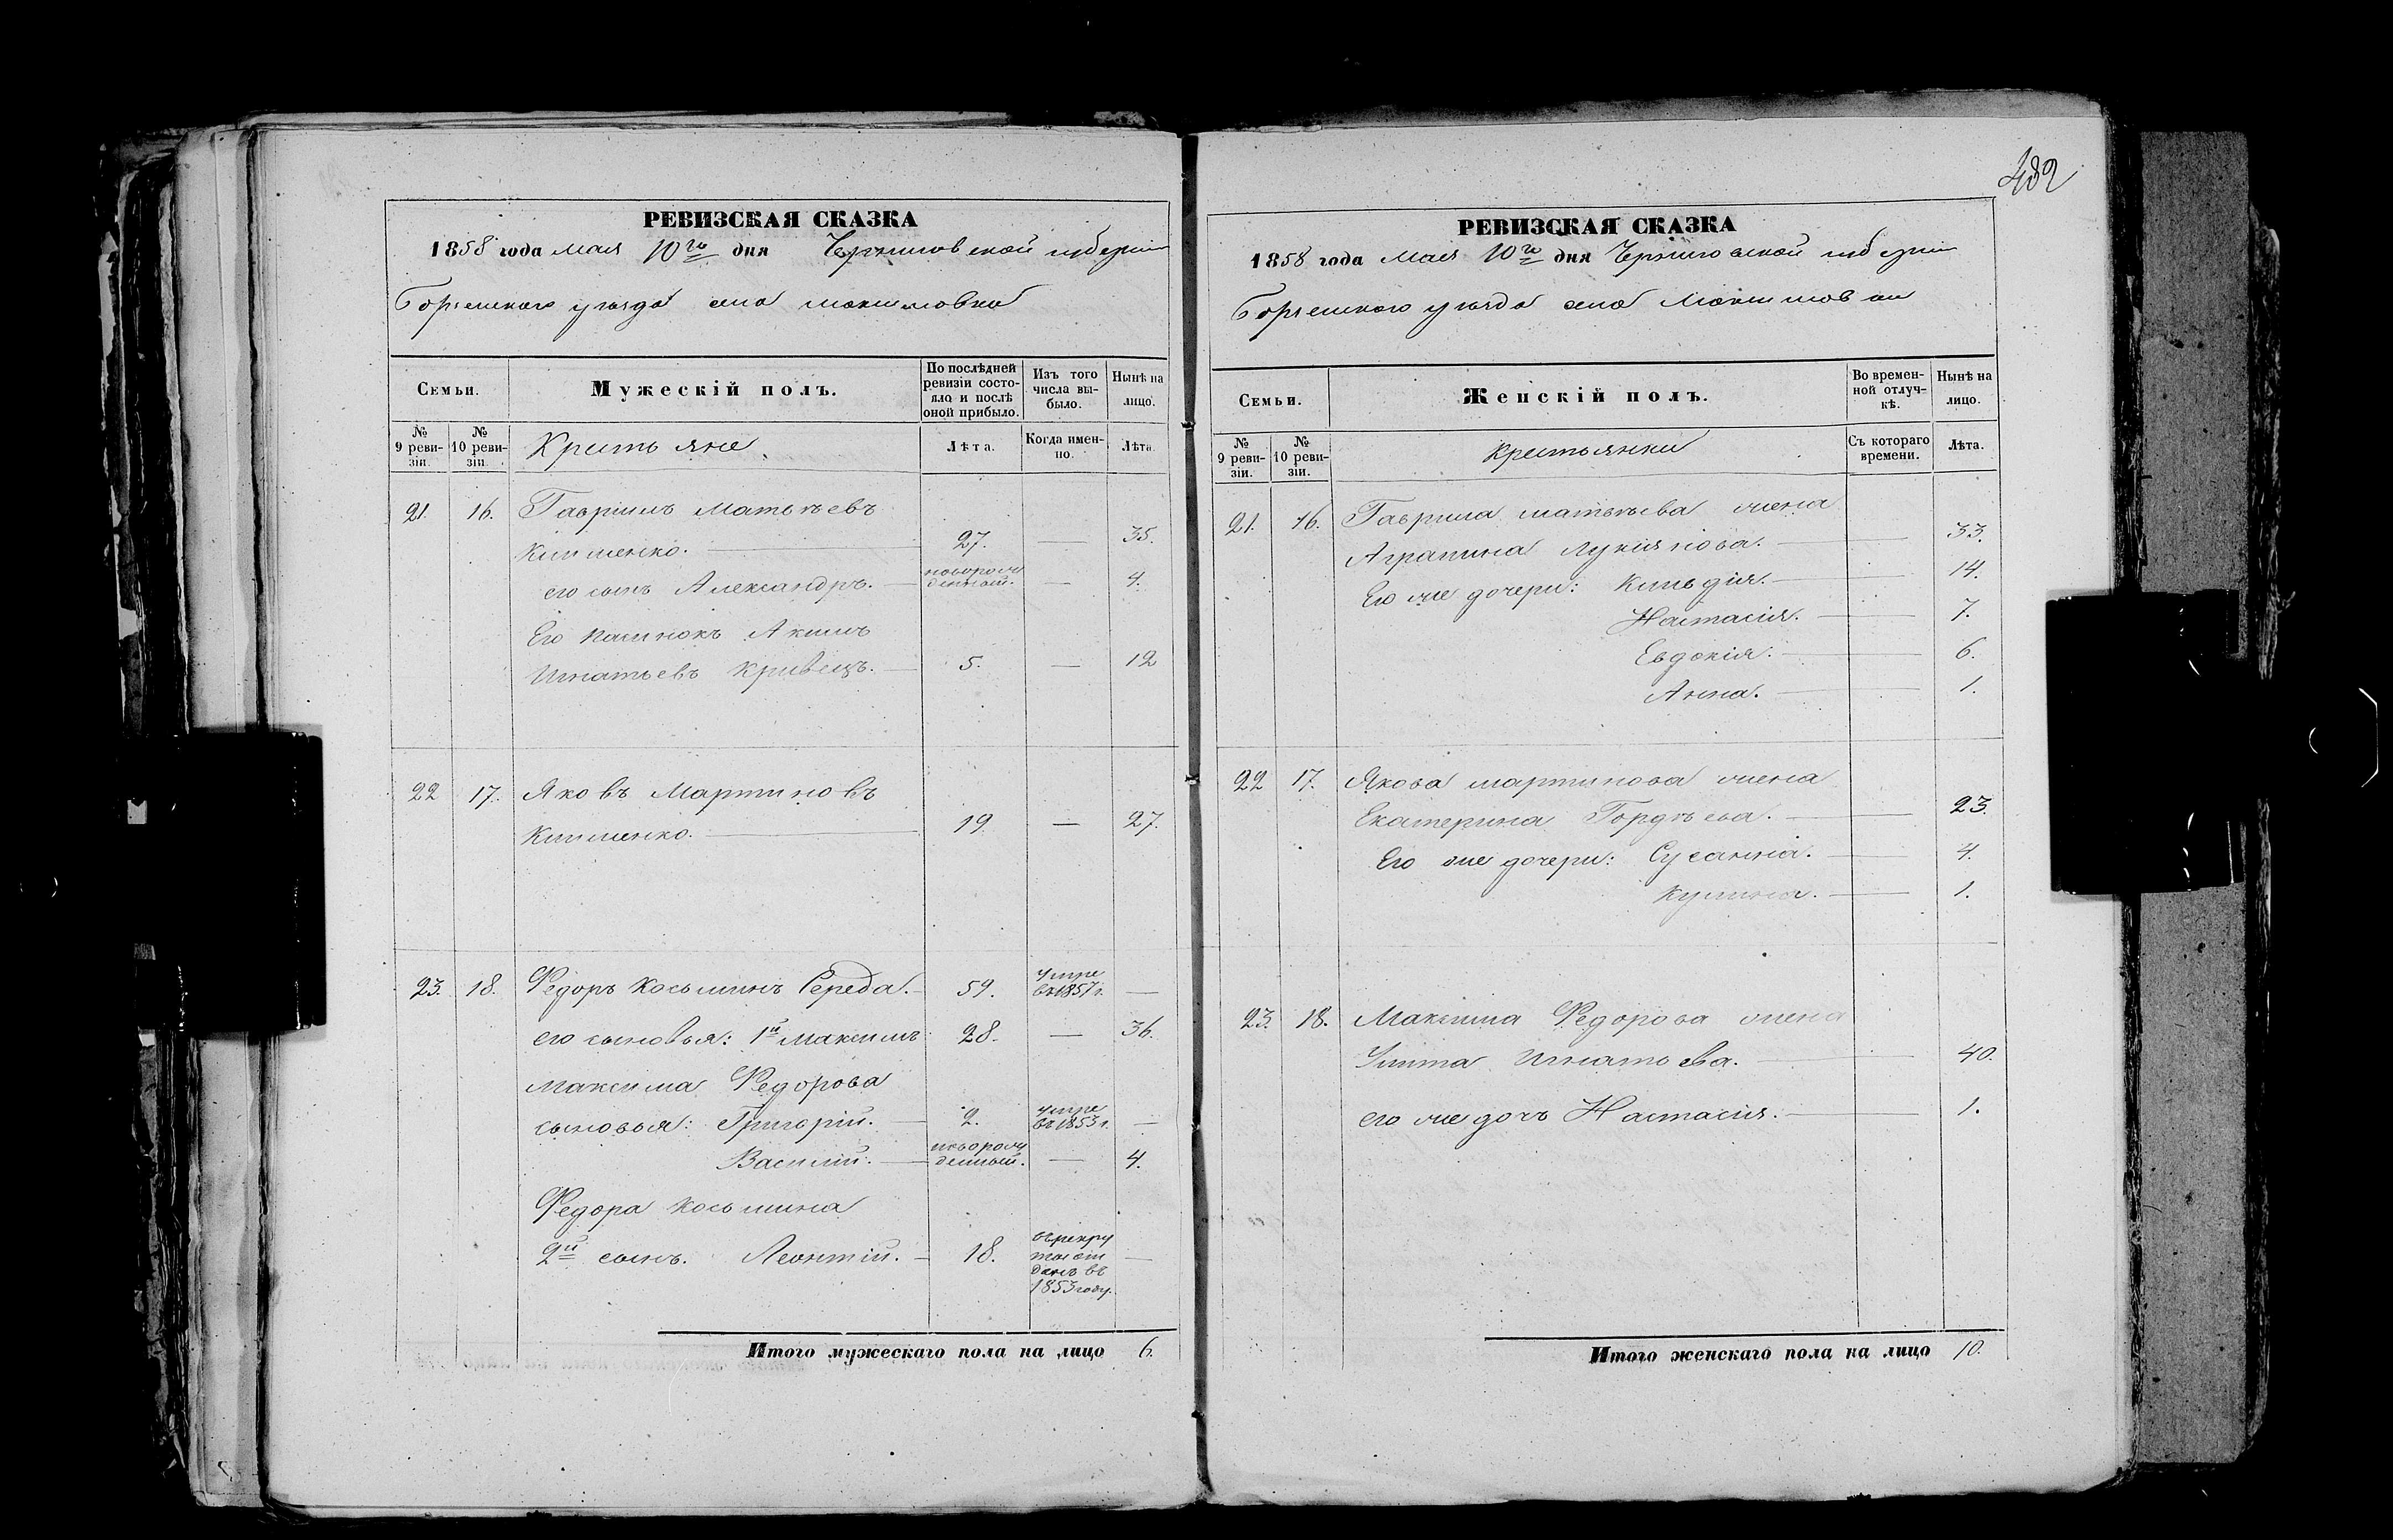 РЕВИЗСКАЯ СКАЗКА
1858 года Мая 10го дня Черниговской губерніи
Борзенского уѣзда села Максимовки
Семьи. Мужескій полъ. По послѣдней ревизіи состояло и послѣ оной прибыло. Изъ того числа выбыло. Нынѣ на лицо.
№ 9 ревизіи. № 10 ревизіи. Крестьяне Лѣта. Когда именно. Лѣта.
21. 16. Гавріилъ Матвѣевъ
Клименко. 27. — 35.
его сынъ Александръ. новорожденный. — 4.
Его пасинокъ Акимъ
Игнатьевъ Кривецъ. 5. — 12
22 17. Яковъ Мартиновъ
Клименко. 19. — 27.
23. 18. Федоръ Косьминъ Середа. 59. умре въ 1857 г. —
его сыновья: 1й Максимъ 28. — 36.
Максима Федорова
сыновья: Григорій. 2. умре въ 1853 г. —
Василій. новорожденный. — 4.
Федора Косьмина
2й сынъ. Леонтій. 18. въ рекруты отданъ въ 1853 году. —
Итого мужескаго пола на лицо 6.
482
РЕВИЗСКАЯ СКАЗКА
1858 года Мая 10го дня Черниговской губерніи
Борзенского уѣзда села Максимовки
Семьи. Женскій полъ. Во временной отлучкѣ. Нынѣ на лицо.
№ 9 ревизіи. № 10 ревизіи. Крестьянки Съ котораго времени. Лѣта.
21. 16. Гаврила Матвѣева жена
Аграпина Лукіянова. — 33.
Его же дочери: Клавдія. — 14.
Настасія. — 7.
Евдокія. — 6.
Анна. — 1.
22 17. Якова Мартинова жена
Екатерина Гордѣева. — 23.
Его же дочери: Сусанна. — 4.
Кулина. — 1.
23. 18. Максима Федорова жена
Улита Игнатьева. — 40.
его же дочъ Настасія. — 1.
Итого женскаго пола на лицо 10.